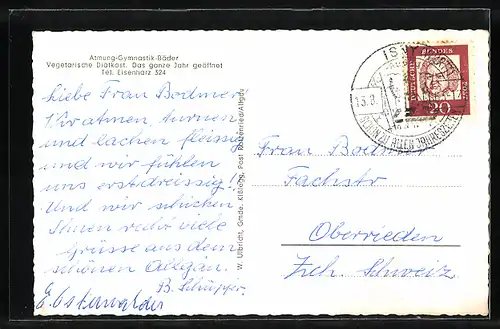 Atmung-Gymnastik-Bäder
Vegetarische Diätkost. Das ganze Jahr geöffnet
Tel. Eisenharz 324
Liebe Frau Bodmer,
Wir atmen, turnen
und lachen fleissig
und wir fühlen
uns erst dreissig!!
Und wir schicken
Ihnen recht viele
Grüsse aus dem
schönen Allgäu.
B. Schupper
W. Ulbricht, Gmde. Kißlegg, Post Rötenried/Allgäu
ISNY
13.8.
DEUTSCHE BUNDESPOST
20
Frau Bodmer
Fachstr
Oberrieden
Zch. Schweiz